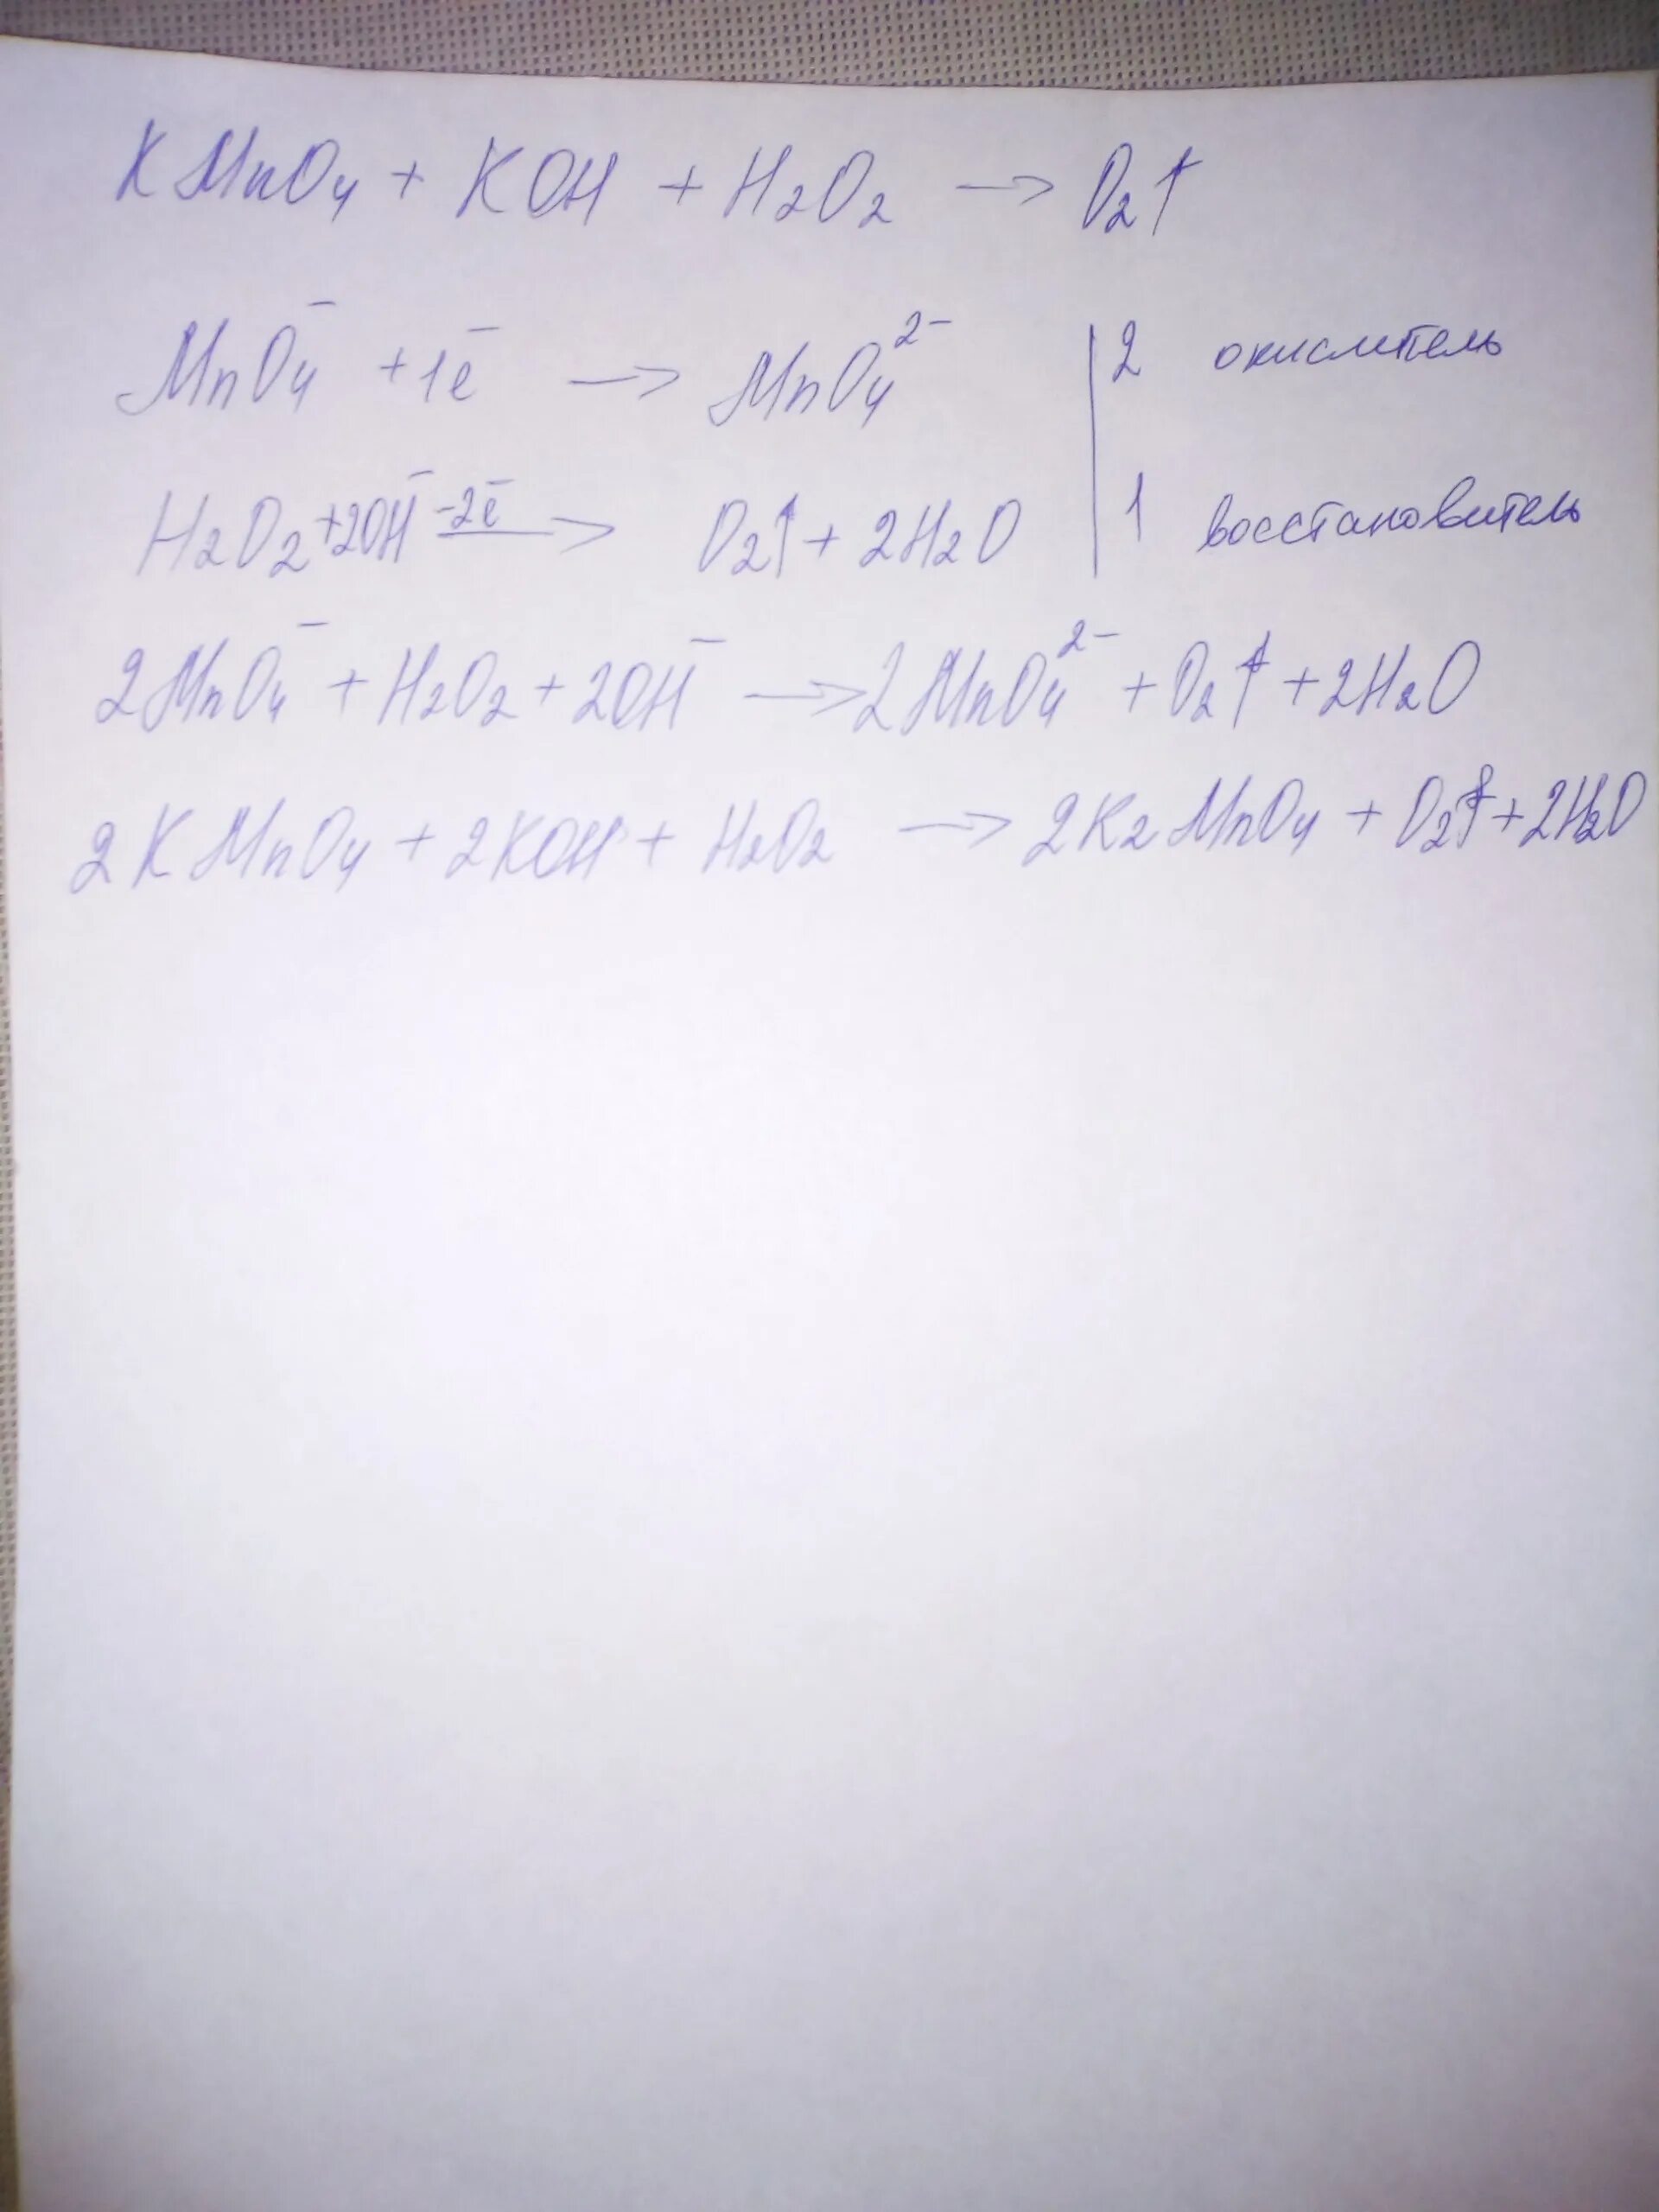 KMnO₄ + KOH + H₂O₂ → O₂↑
MnO₄⁻ + 1e⁻ → MnO₄²⁻ | 2 окислитель
H₂O₂ + 2OH⁻ -2e⁻ → O₂↑ + 2H₂O | 1 восстановитель
2MnO₄⁻ + H₂O₂ + 2OH⁻ → 2MnO₄²⁻ + O₂↑ + 2H₂O
2KMnO₄ + 2KOH + H₂O₂ → 2K₂MnO₄ + O₂↑ + 2H₂O